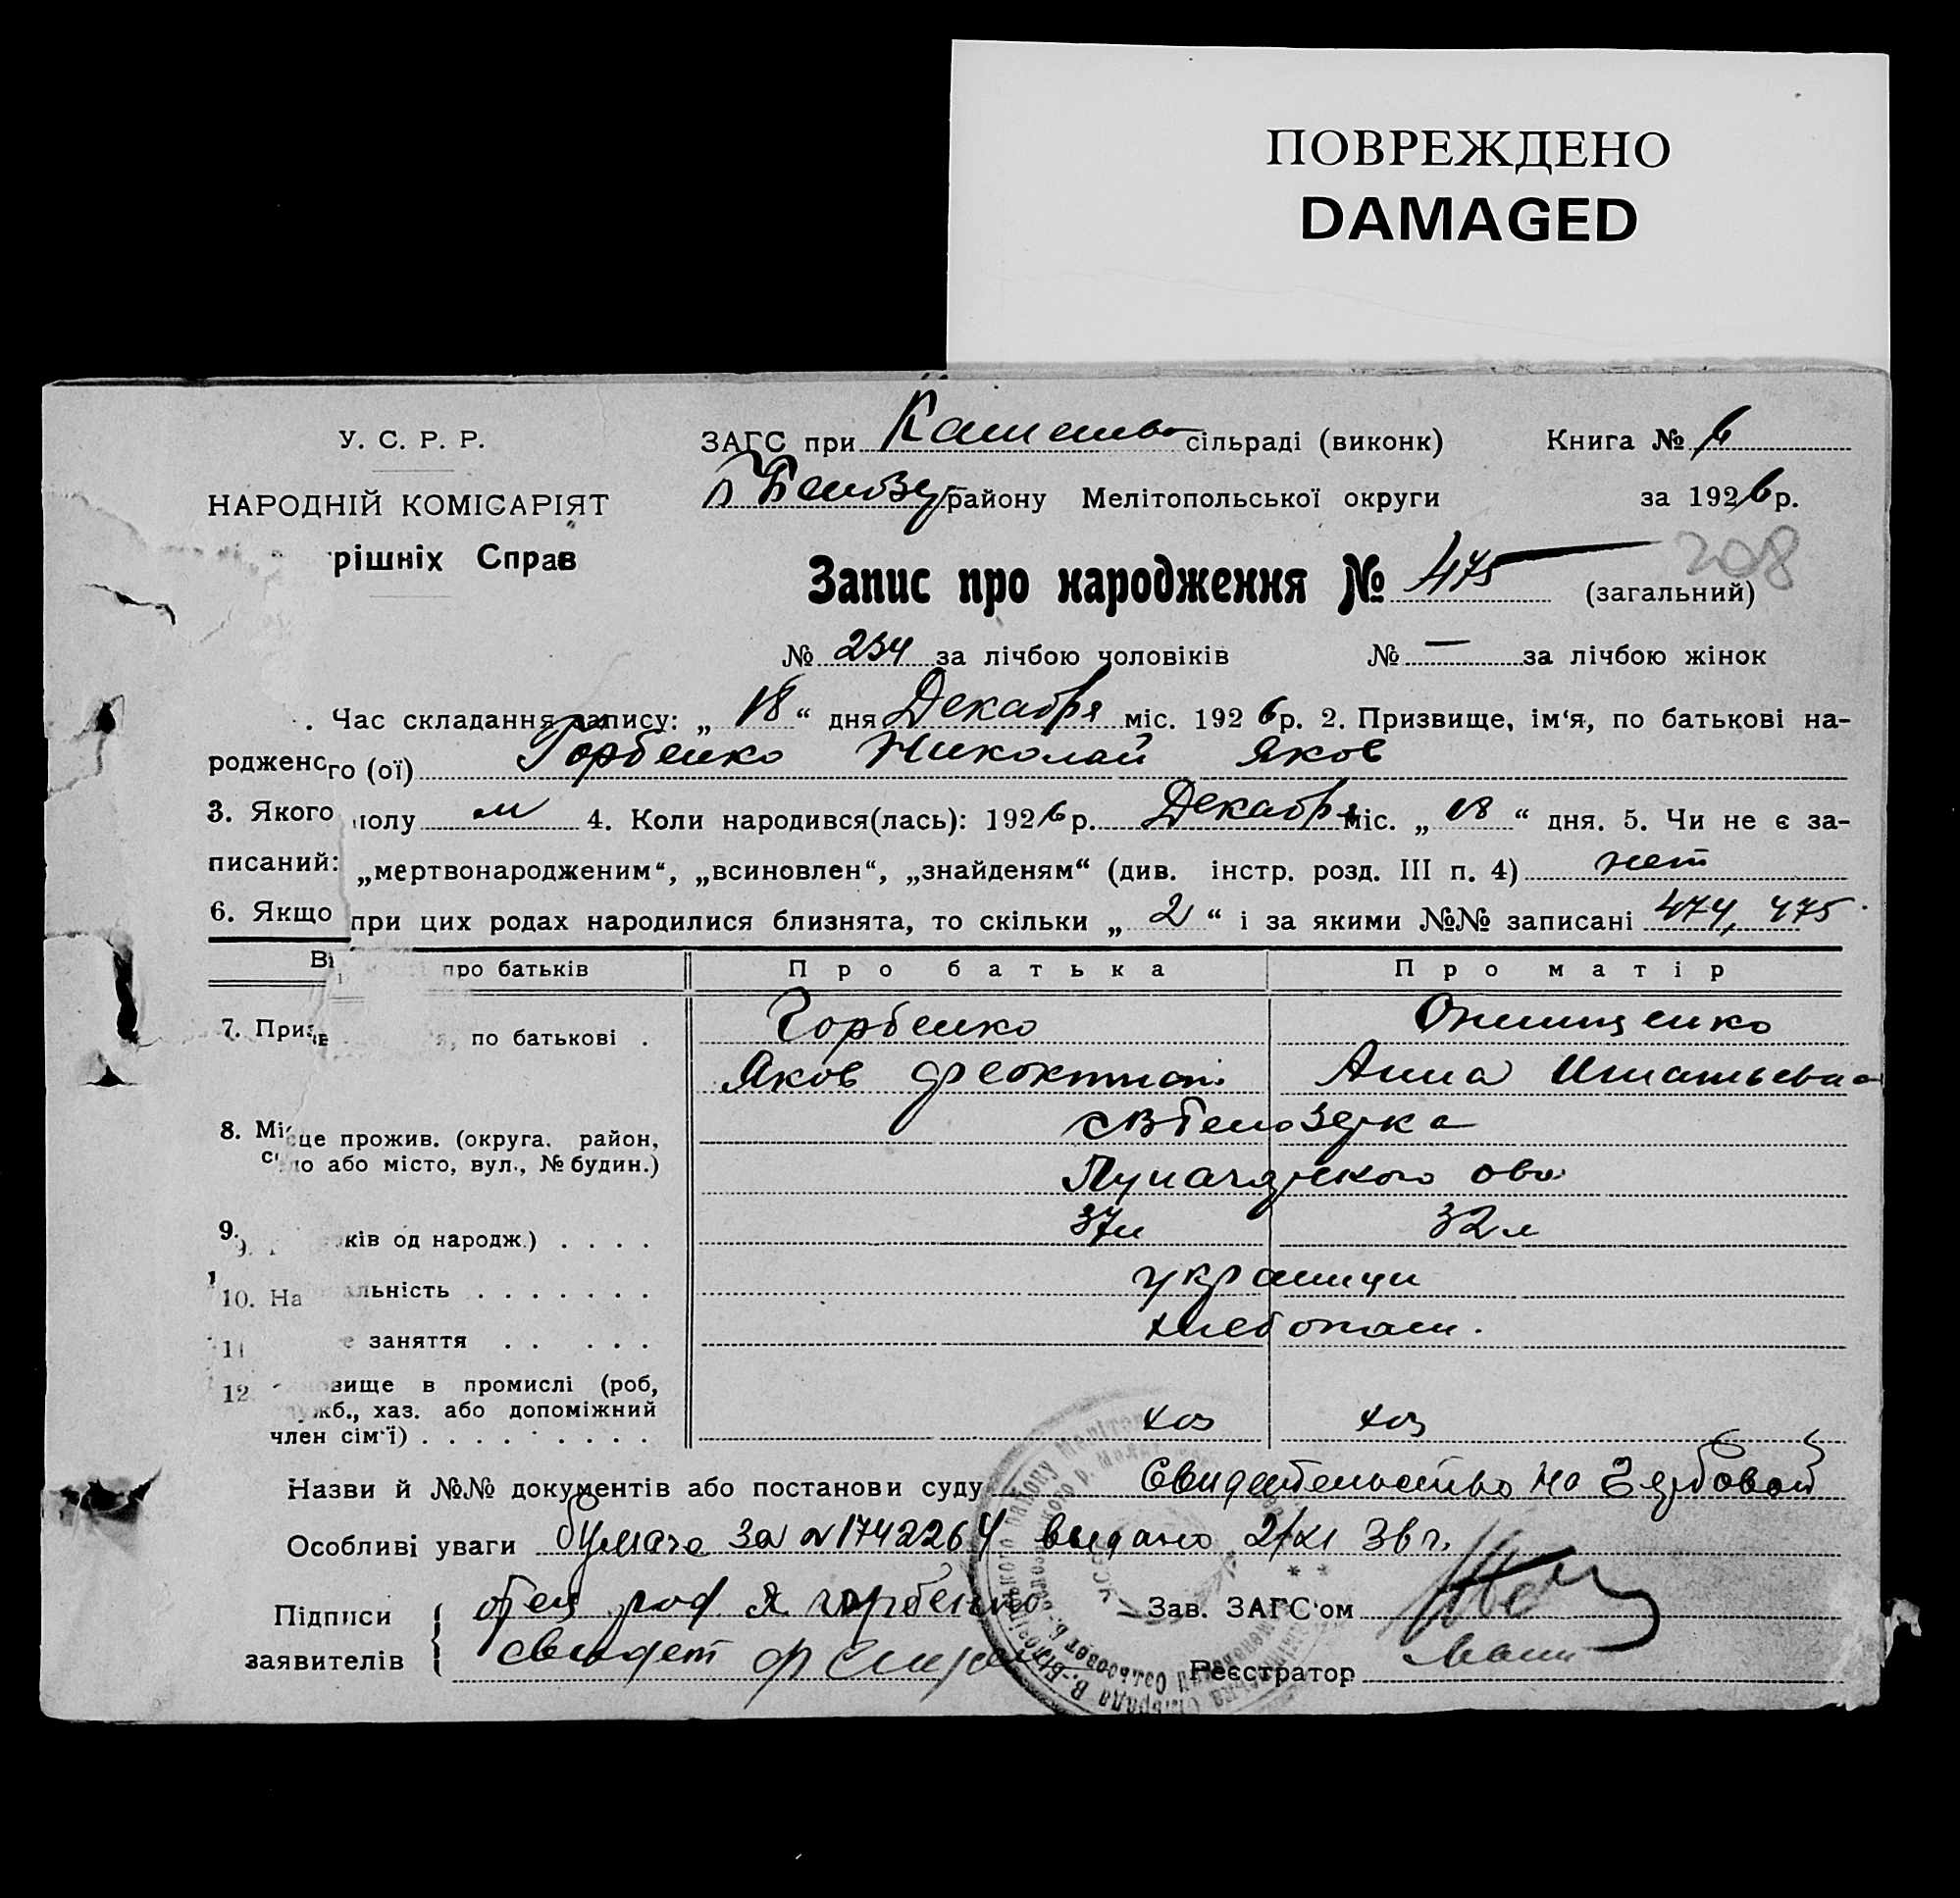 ПОВРЕЖДЕНО
DAMAGED
У. С. Р. Р.
НАРОДНІЙ КОМІСАРІЯТ
рішніх Справ
ЗАГС при сільраді (виконк) Книга № 6
району Мелітопольської округи за 1926 р.
Запис про народження № 475 (загальний)
208
№ 234 за лічбою чоловіків № — за лічбою жінок
. Час складання запису: „ 18 “ дня Декабря міс. 1926 р. 2. Призвище, ім‘я, по батькові на-
родженого (ої) Горбенко Николай Яков
3. Якого полу м 4. Коли народився(лась): 1926 р. Декабря міс. „ 18 “ дня. 5. Чи не є за-
писаний: „мертвонародженим“, „всиновлен“, „знайденям“ (див. інстр. розд. III п. 4) нет
6. Якщо при цих родах народилися близнята, то скільки „ 2 “ і за якими №№ записані 474, 475
про батьків Про батька Про матір
7. по батькові . Горбенко Онищенко
Яков Феоктист. Анна Игнатьевна
8. Місце прожив. (округа, район, Белозерка
село або місто, вул., № будин.)
9. років од народж.) . . . . 37л 32л
10. . . . . . . . украинци
11 заняття . . . . . хлебопаш.
12. в промислі (роб,
служб., хаз. або допоміжний хоз хоз
член сім‘ї) . . . . . . . . .
Назви й №№ документів або постанови суду Свидетельство на Гербовой
Особливі уваги бумаге за № 1742264 выдано 2/XI 36 г.
Підписи отец Я Горбенко Зав. ЗАГС‘ом
заявителів свидет Ф Реєстратор